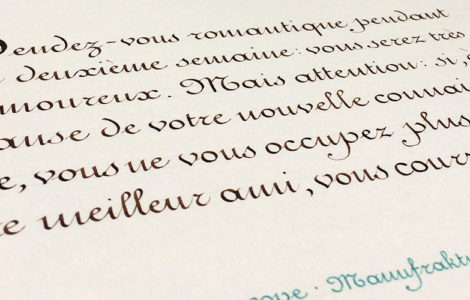 Rendez-vous romantique pendant
deuxième semaine: vous serez très
amoureux. Mais attention: si,
cause de votre nouvelle connai
e, vous ne vous occupez plus
re meilleur ami, vous cour
Manufraktu